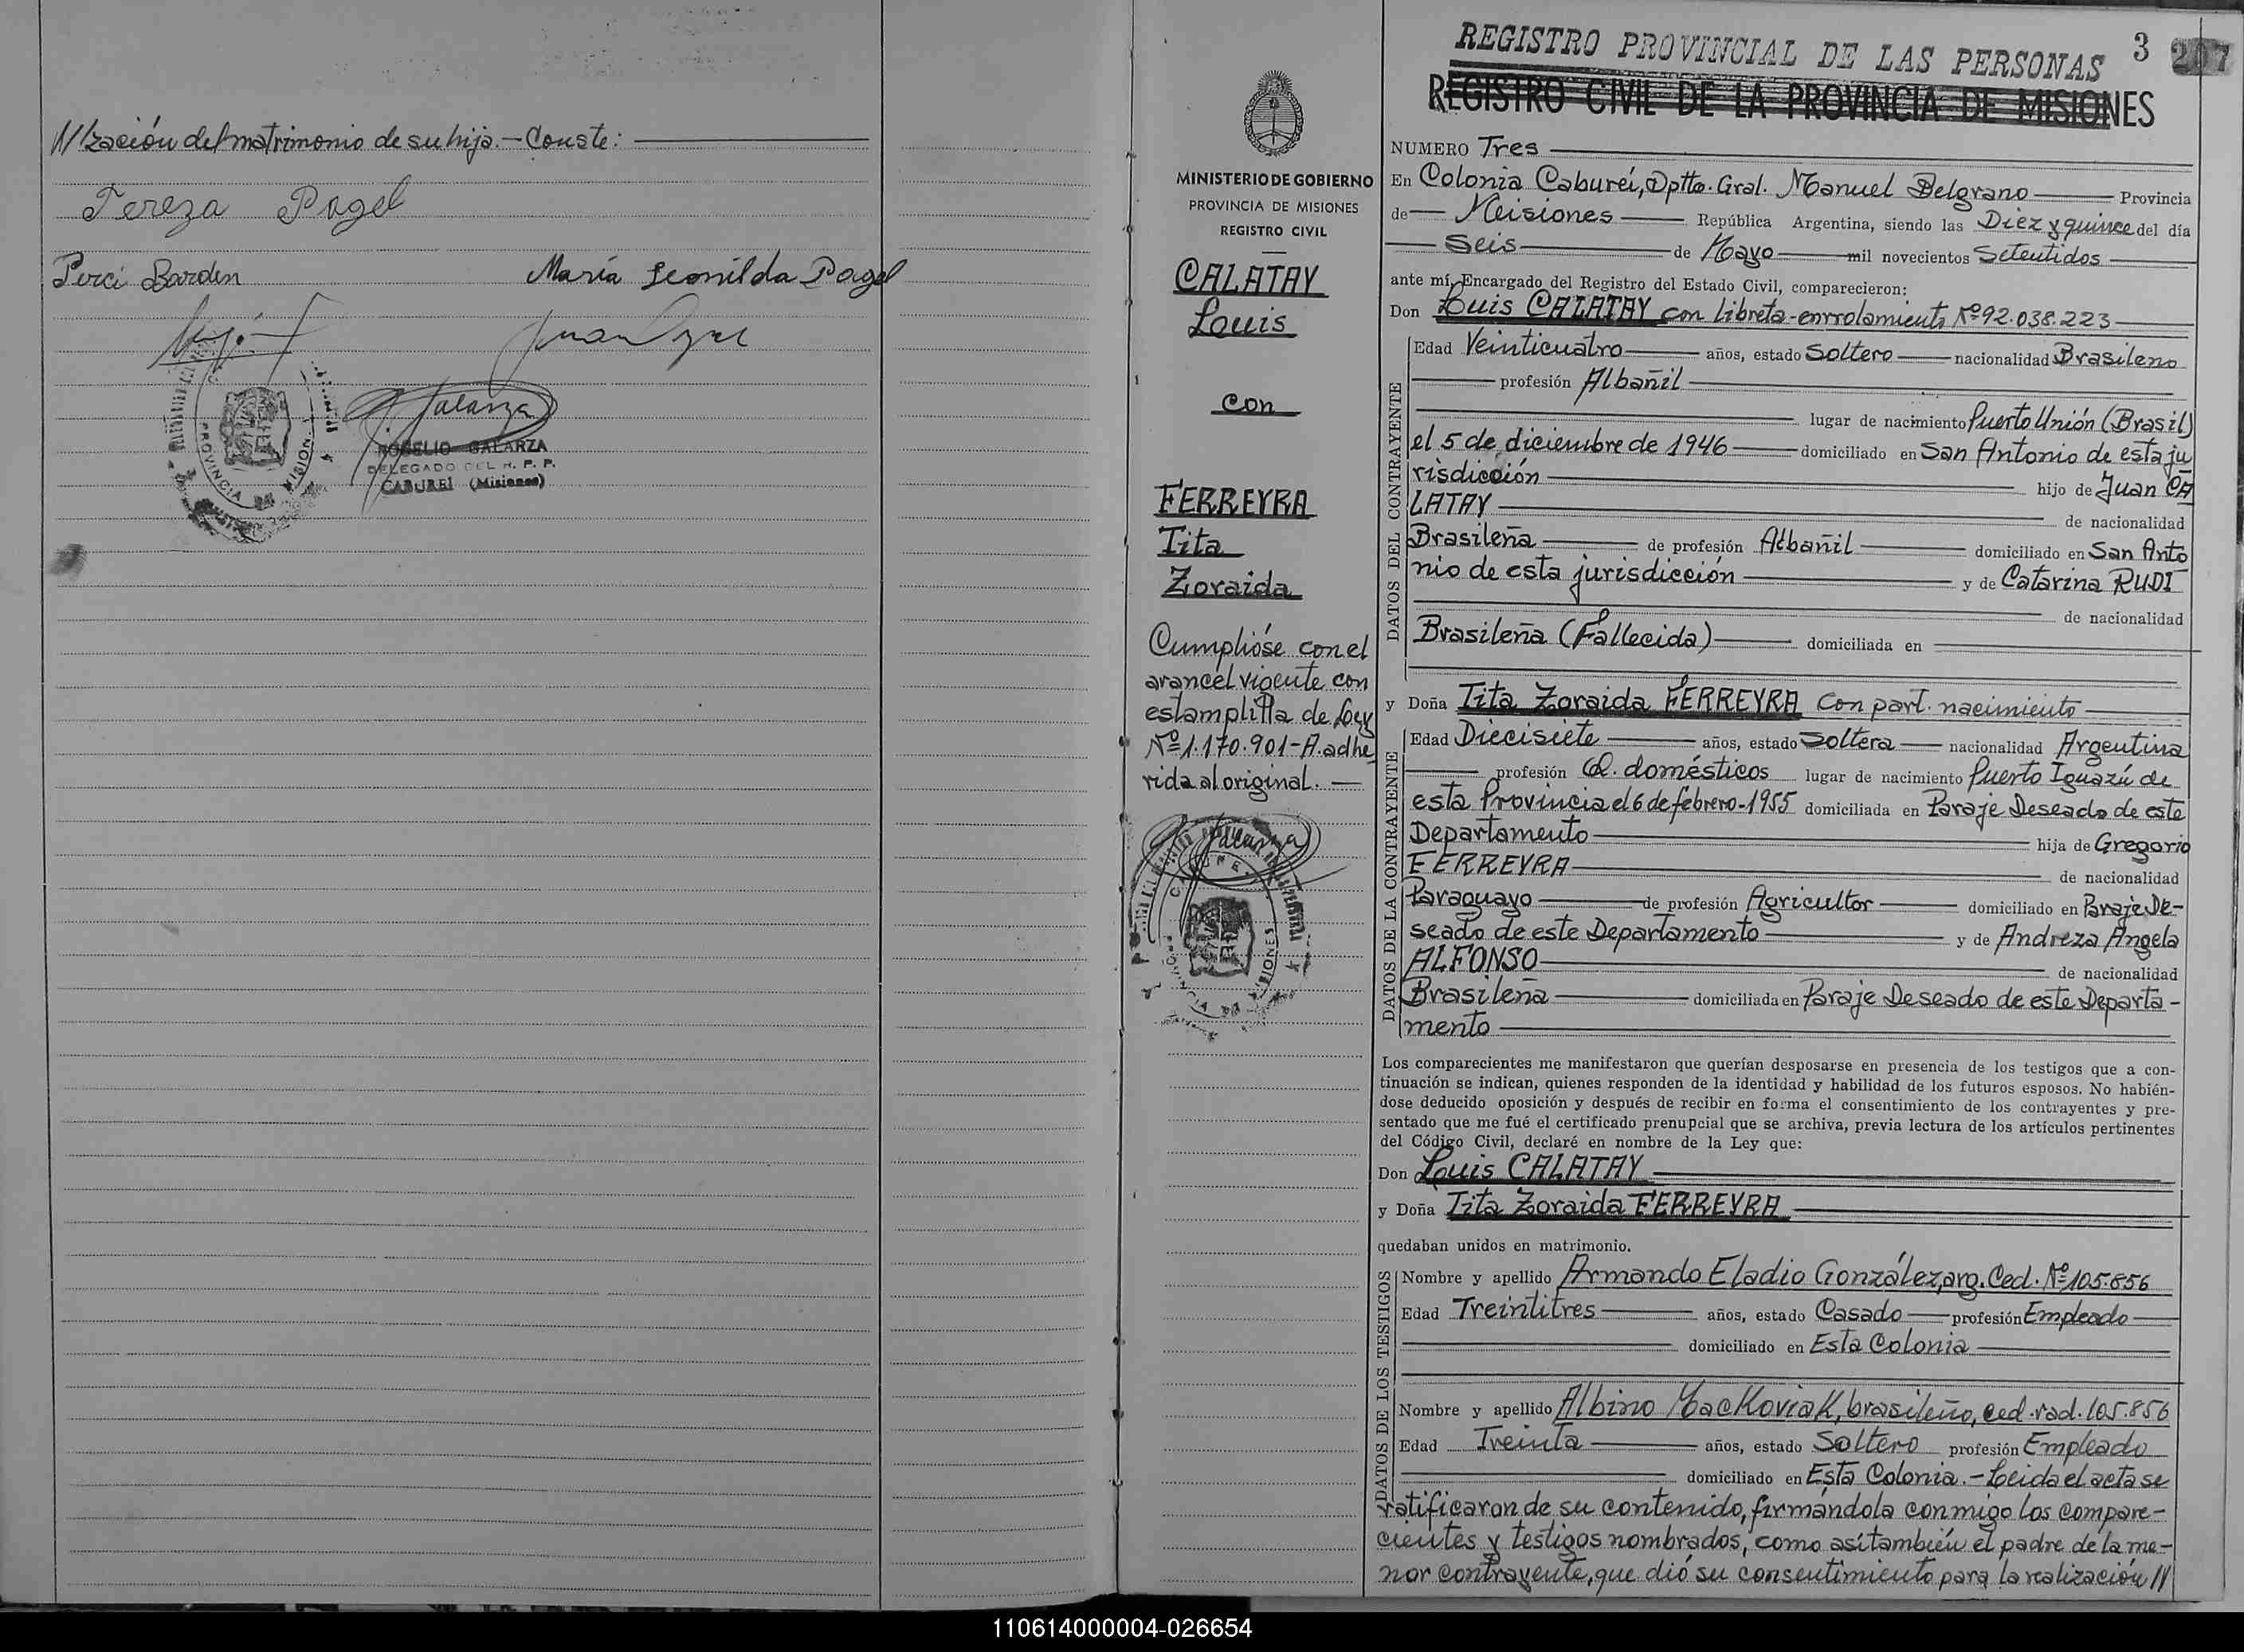 //zación del matrimonio de su hija.- Conste:
Tereza Pagel
Perci Barden
María Leonilda Pagel
Galarza
ROGELIO GALARZA
DELEGADO DEL R. P. P.
CABUREÍ (Misiones)
PROVINCIA DE MISIONES
MINISTERIO DE GOBIERNO
PROVINCIA DE MISIONES
REGISTRO CIVIL
CALATAY
Louis
con
FERREYRA
Tita
Zoraida
Cumplióse con el
arancel vigente con
estampilla de Ley
Nº 1.170.901-A. adhe
rida al original.-
Galarza
PROVINCIA DE MISIONES
REGISTRO PROVINCIAL DE LAS PERSONAS 3 207
REGISTRO CIVIL DE LA PROVINCIA DE MISIONES
NUMERO Tres
En Colonia Cabureí, Dptto. Gral. Manuel Belgrano Provincia
de Misiones República Argentina, siendo las Diez y quince del día
Seis de Mayo mil novecientos Setentidos
ante mí, Encargado del Registro del Estado Civil, comparecieron:
Don Louis CALATAY con libreta-enrrolamiento Nº 92.038.223
DATOS DEL CONTRAYENTE
Edad Veinticuatro años, estado Soltero nacionalidad Brasileno
profesión Albañil
lugar de nacimiento Puerto Unión (Brasil)
el 5 de diciembre de 1946 domiciliado en San Antonio de esta ju
risdicción hijo de Juan CA
LATAY de nacionalidad
Brasileña de profesión Albañil domiciliado en San Anto
nio de esta jurisdicción y de Catarina RUDI
de nacionalidad
Brasileña (Fallecida) domiciliada en
y Doña Tita Zoraida FERREYRA con part. nacimiento
DATOS DE LA CONTRAYENTE
Edad Diecisiete años, estado Soltera nacionalidad Argentina
profesión Q. domésticos lugar de nacimiento Puerto Iguazú de
esta Provincia el 6 de febrero-1955 domiciliada en Paraje Deseado de este
Departamento hija de Gregorio
FERREYRA de nacionalidad
Paraguayo de profesión Agricultor domiciliado en Paraje De-
seado de este Departamento y de Andreza Angela
ALFONSO de nacionalidad
Brasileña domiciliada en Paraje Deseado de este Departa-
mento
Los comparecientes me manifestaron que querían desposarse en presencia de los testigos que a con-
tinuación se indican, quienes responden de la identidad y habilidad de los futuros esposos. No habién-
dose deducido oposición y después de recibir en forma el consentimiento de los contrayentes y pre-
sentado que me fué el certificado prenupcial que se archiva, previa lectura de los artículos pertinentes
del Código Civil, declaré en nombre de la Ley que:
Don Louis CALATAY
y Doña Tita Zoraida FERREYRA
quedaban unidos en matrimonio.
DATOS DE LOS TESTIGOS
Nombre y apellido Armando Eladio González, arg. Ced. Nº 105.856
Edad Treintitres años, estado Casado profesión Empleado
domiciliado en Esta Colonia
Nombre y apellido Albino Mackoviak, brasileño, ced. rad. 105.856
Edad Treinta años, estado Soltero profesión Empleado
domiciliado en Esta Colonia.- Leida el acta se
ratificaron de su contenido, firmándola conmigo los compare-
cientes y testigos nombrados, como así también el padre de la me-
nor contrayente, que dió su consentimiento para la realización //
110614000004-026654